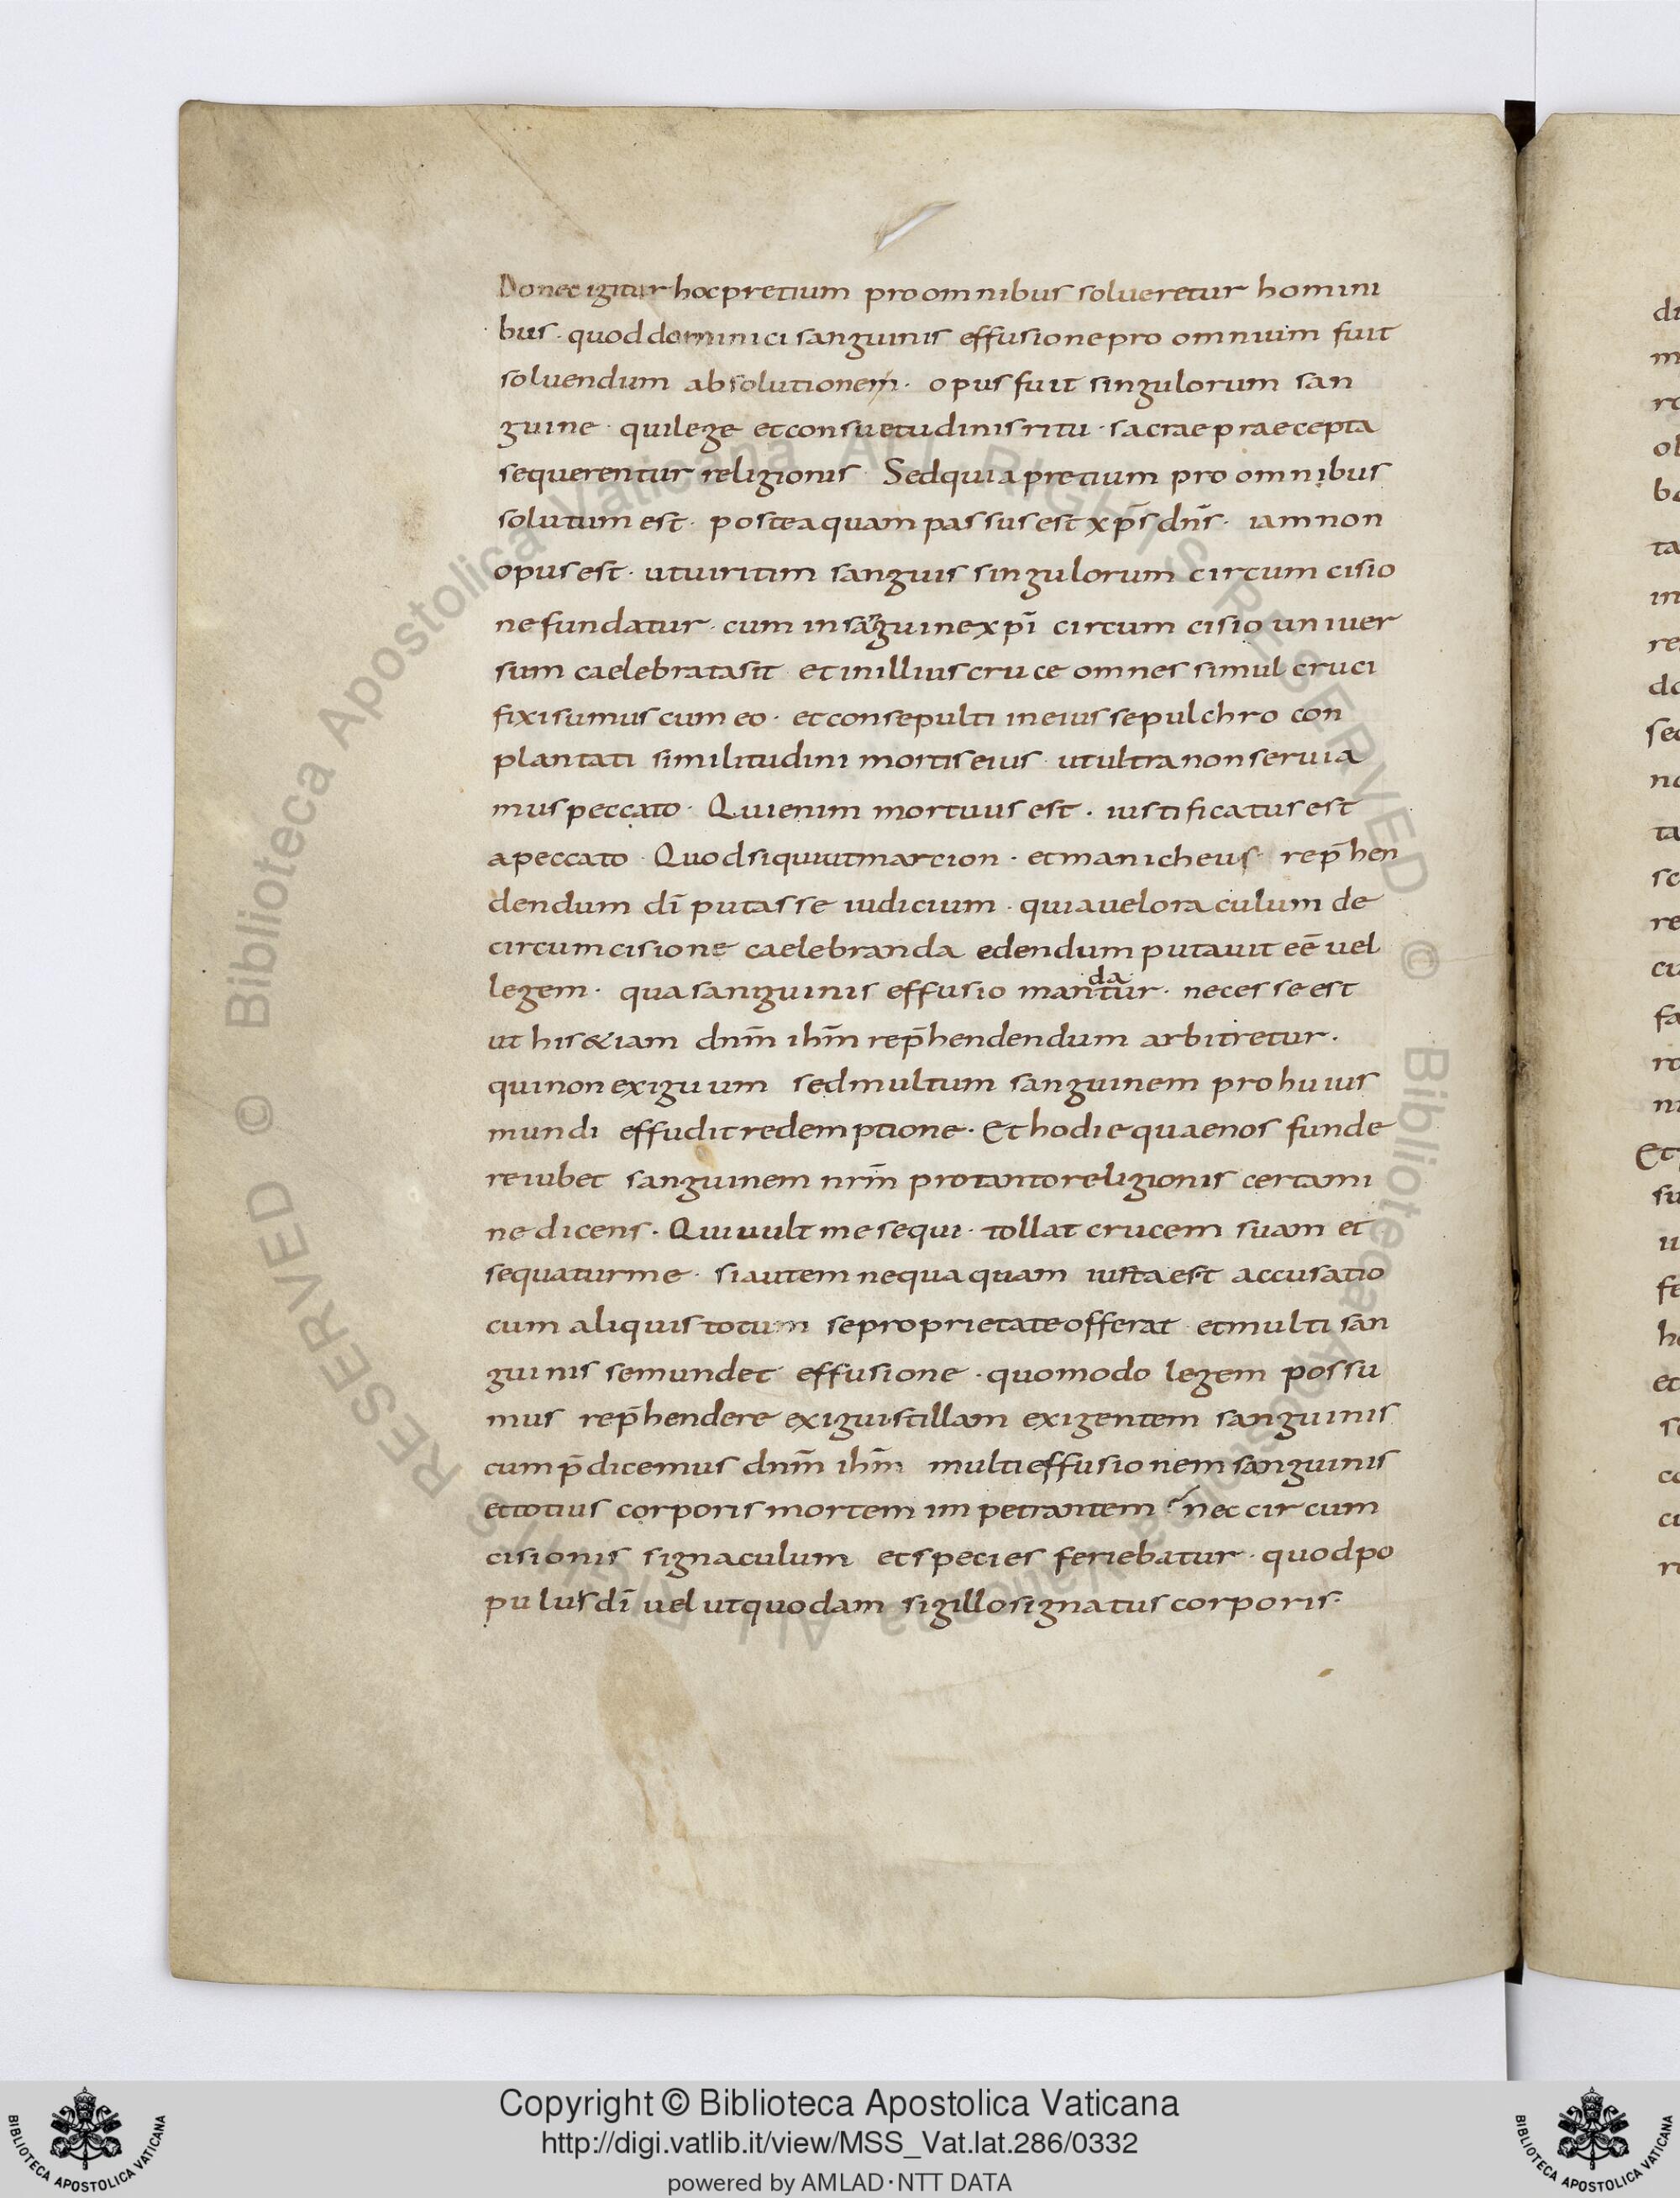 Donec igitur hoc pretium pro omnibus solueretur homini
bus · quod dominici sanguinis effusione pro omnium fuit
soluendum absolutionem · opus fuit singulorum san
guine · qui lege et consuetudinis ritu · sacrae praecepta
sequerentur religionis · Sed quia pretium pro omnibus
solutum est · postea quam passus est xp̄s dn̄s · iam non
opus est · ut uiritim sanguis singulorum circumcisio
ne fundatur · cum in sanguine xp̄i circumcisio uniuer
sum caelebrata sit · et in illius cruce omnes simul cruci
fixi sumus cum eo · et consepulti in eius sepulchro con
plantati similitudini mortis eius · ut ultra non seruia
mus peccato · Qui enim mortuus est · iustificatus est
a peccato · Quod siquiut marcion · et manicheus · rep̄hen
dendum dī putasse iudicium · quia uel oraculum de
circumcisione caelebranda edendum putauit eē uel
legem · qua sanguinis effusio mandatur · necesse est
ut his &iam dnm̄ ihm̄ rep̄hendendum arbitretur ·
qui non exiguum sed multum sanguinem pro huius
mundi effudit redemptione · Et hodie quae nos funde
re iubet sanguinem nrm̄ pro tanto religionis certami
ne dicens · Qui uult me sequi · tollat crucem suam et
sequatur me · si autem nequaquam iusta est accusatio
cum aliquis totum se proprietate offerat · et multi san
guinis se mundet effusione · quomodo legem possu
mus rep̄hendere exigui stillam exigentem sanguinis
cum p̄dicemus dnm̄ ihm̄ multi effusionem sanguinis
et totius corporis mortem impetrantem · nec circum
cisionis signaculum et species feriebatur · quod po
pulus dī uel ut quodam sigillo signatus corporis ·
Copyright © Biblioteca Apostolica Vaticana
http://digi.vatlib.it/view/MSS_Vat.lat.286/0332
powered by AMLAD · NTT DATA
BIBLIOTECA APOSTOLICA VATICANA
BIBLIOTECA APOSTOLICA VATICANA